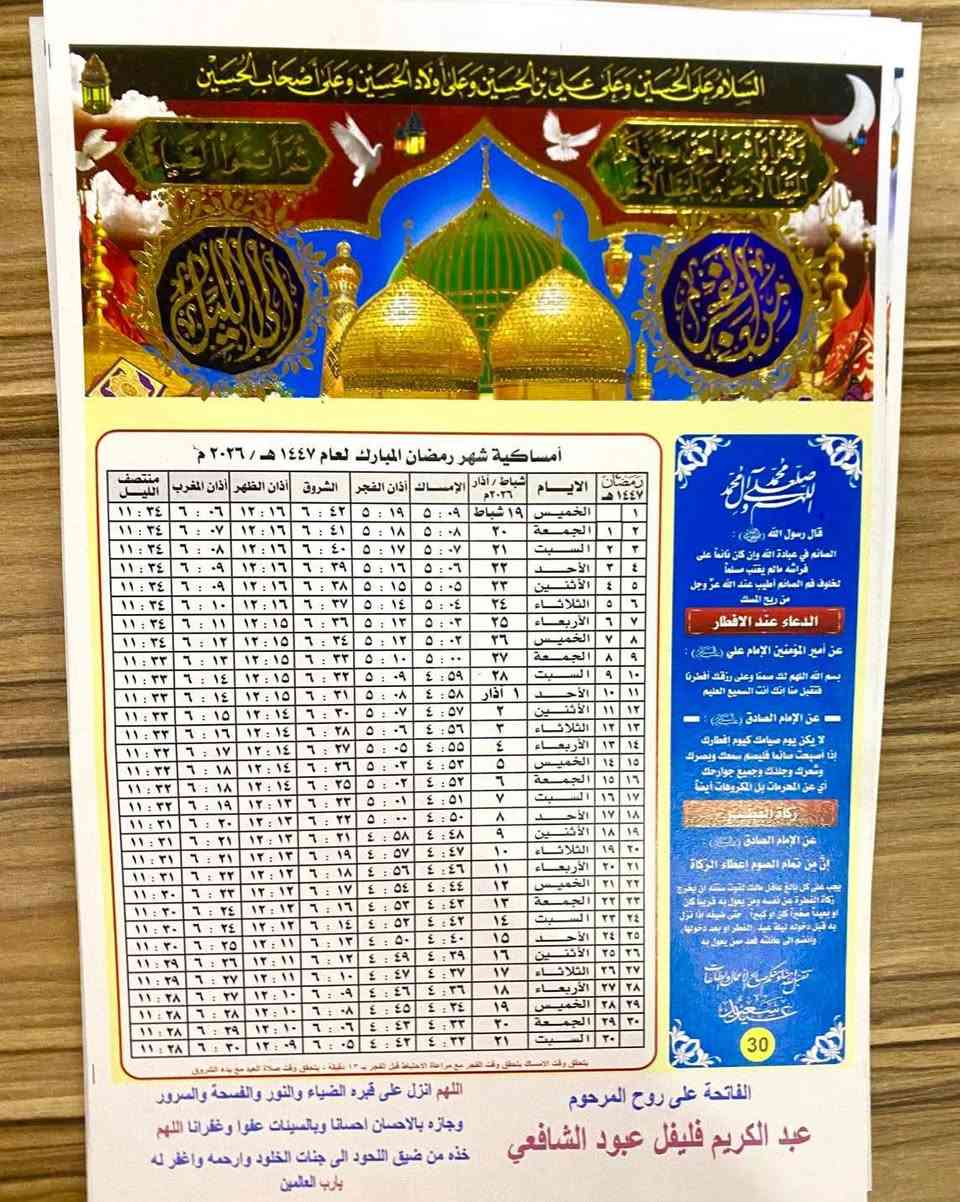 السلام على الحسين وعلى علي بن الحسين وعلى أولاد الحسين وعلى أصحاب الحسين
وكلوا واشربوا حتى يتبين لكم
الخيط الأبيض من الخيط الأسود
ثم أتموا الصيام
من الفجر
إلى الليل
أمساكية شهر رمضان المبارك لعام ١٤٤٧ هـ / ٢٠٢٦ م
رمضان ١٤٤٧ هـ الايـام شباط / آذار ٢٠٢٦م الإمساك أذان الفجر الشروق أذان الظهر أذان المغرب منتصف الليل
١ الخميس ١٩ شباط ٥:٠٩ ٥:١٩ ٦:٤٢ ١٢:١٦ ٦:٠٦ ١١:٣٤
٢ ١ الجمعة ٢٠ ٥:٠٨ ٥:١٨ ٦:٤١ ١٢:١٦ ٦:٠٧ ١١:٣٤
٣ ٢ السبت ٢١ ٥:٠٧ ٥:١٧ ٦:٤٠ ١٢:١٦ ٦:٠٨ ١١:٣٤
٤ ٣ الأحد ٢٢ ٥:٠٦ ٥:١٦ ٦:٣٩ ١٢:١٦ ٦:٠٩ ١١:٣٤
٥ ٤ الأثنين ٢٣ ٥:٠٥ ٥:١٥ ٦:٣٨ ١٢:١٦ ٦:٠٩ ١١:٣٤
٦ ٥ الثلاثاء ٢٤ ٥:٠٤ ٥:١٤ ٦:٣٧ ١٢:١٦ ٦:١٠ ١١:٣٤
٧ ٦ الأربعاء ٢٥ ٥:٠٣ ٥:١٣ ٦:٣٦ ١٢:١٥ ٦:١١ ١١:٣٤
٨ ٧ الخميس ٢٦ ٥:٠٢ ٥:١٢ ٦:٣٤ ١٢:١٥ ٦:١٢ ١١:٣٤
٩ ٨ الجمعة ٢٧ ٥:٠٠ ٥:١٠ ٦:٣٣ ١٢:١٥ ٦:١٣ ١١:٣٣
١٠ ٩ السبت ٢٨ ٤:٥٩ ٥:٠٩ ٦:٣٢ ١٢:١٥ ٦:١٤ ١١:٣٣
١١ ١٠ الأحد ١ آذار ٤:٥٨ ٥:٠٨ ٦:٣١ ١٢:١٥ ٦:١٤ ١١:٣٣
١٢ ١١ الأثنين ٢ ٤:٥٧ ٥:٠٧ ٦:٣٠ ١٢:١٤ ٦:١٥ ١١:٣٣
١٣ ١٢ الثلاثاء ٣ ٤:٥٦ ٥:٠٦ ٦:٢٨ ١٢:١٤ ٦:١٦ ١١:٣٣
١٤ ١٣ الأربعاء ٤ ٤:٥٥ ٥:٠٥ ٦:٢٧ ١٢:١٤ ٦:١٧ ١١:٣٢
١٥ ١٤ الخميس ٥ ٤:٥٣ ٥:٠٣ ٦:٢٦ ١٢:١٤ ٦:١٨ ١١:٣٢
١٦ ١٥ الجمعة ٦ ٤:٥٢ ٥:٠٢ ٦:٢٥ ١٢:١٤ ٦:١٨ ١١:٣٢
١٧ ١٦ السبت ٧ ٤:٥١ ٥:٠١ ٦:٢٣ ١٢:١٣ ٦:١٩ ١١:٣٢
١٨ ١٧ الأحد ٨ ٤:٥٠ ٥:٠٠ ٦:٢٢ ١٢:١٣ ٦:٢٠ ١١:٣١
١٩ ١٨ الأثنين ٩ ٤:٤٨ ٤:٥٨ ٦:٢١ ١٢:١٣ ٦:٢١ ١١:٣١
٢٠ ١٩ الثلاثاء ١٠ ٤:٤٧ ٤:٥٧ ٦:١٩ ١٢:١٣ ٦:٢١ ١١:٣١
٢١ ٢٠ الأربعاء ١١ ٤:٤٦ ٤:٥٦ ٦:١٨ ١٢:١٣ ٦:٢٢ ١١:٣١
٢٢ ٢١ الخميس ١٢ ٤:٤٤ ٤:٥٤ ٦:١٧ ١٢:١٢ ٦:٢٣ ١١:٣٠
٢٣ ٢٢ الجمعة ١٣ ٤:٤٣ ٤:٥٣ ٦:١٦ ١٢:١٢ ٦:٢٤ ١١:٣٠
٢٤ ٢٣ السبت ١٤ ٤:٤٢ ٤:٥٢ ٦:١٤ ١٢:١٢ ٦:٢٤ ١١:٣٠
٢٥ ٢٤ الأحد ١٥ ٤:٤٠ ٤:٥٠ ٦:١٣ ١٢:١١ ٦:٢٥ ١١:٣٠
٢٦ ٢٥ الأثنين ١٦ ٤:٣٩ ٤:٤٩ ٦:١٢ ١٢:١١ ٦:٢٦ ١١:٢٩
٢٧ ٢٦ الثلاثاء ١٧ ٤:٣٧ ٤:٤٧ ٦:١٠ ١٢:١١ ٦:٢٧ ١١:٢٩
٢٨ ٢٧ الأربعاء ١٨ ٤:٣٦ ٤:٤٦ ٦:٠٩ ١٢:١٠ ٦:٢٧ ١١:٢٨
٢٩ ٢٨ الخميس ١٩ ٤:٣٤ ٤:٤٥ ٦:٠٨ ١٢:١٠ ٦:٢٨ ١١:٢٨
٣٠ ٢٩ الجمعة ٢٠ ٤:٣٣ ٤:٤٣ ٦:٠٦ ١٢:١٠ ٦:٢٩ ١١:٢٨
٣٠ السبت ٢١ ٤:٣٢ ٤:٤٢ ٦:٠٥ ١٢:٠٩ ٦:٣٠ ١١:٢٨
يتحقق وقت الامساك بتحقق وقت الفجر مع مراعاة الاحتياط قبل الفجر بـ ١٣ دقيقة ، يتحقق وقت صلاة العيد مع بدء الشروق
اللهم صل على محمد وآل محمد
قال رسول الله :
الصائم في عبادة الله وإن كان نائماً على
فراشه مالم يغتب مسلماً
لخلوف فم الصائم أطيب عند الله عزّ وجل
من ريح المسك
الدعاء عند الافطار
عن أمير المؤمنين الإمام علي :
بسم الله اللهم لك صمنا وعلى رزقك أفطرنا
فتقبل منّا إنك أنت السميع العليم
عن الإمام الصادق :
لا يكن يوم صيامك كيوم إفطارك
إذا أصبحت صائما فليصم سمعك وبصرك
وشعرك وجلدك وجميع جوارحك
أي عن المحرمات بل المكروهات أيضاً
زكاة الفطرة
عن الإمام الصادق :
إنّ من تمام الصوم اعطاء الزكاة
يجب على كل بالغ عاقل مالك لقوت سنته ان يخرج
زكاة الفطرة عن نفسه ومن يعول به قريباً كان
او بعيداً صغيراً كان او كبيراً حتى ضيفه إذا نزل
به قبل دخوله ليلة عيد الفطر او بعد دخولها
وانضم الى عائلته فعد ممن يعول به
30
الفاتحة على روح المرحوم
عبد الكريم فليفل عبود الشافعي
اللهم انزل على قبره الضياء والنور والفسحة والسرور
وجازه بالاحسان احسانا وبالسيئات عفوا وغفرانا اللهم
خذه من ضيق اللحود الى جنات الخلود وارحمه واغفر له
يارب العالمين